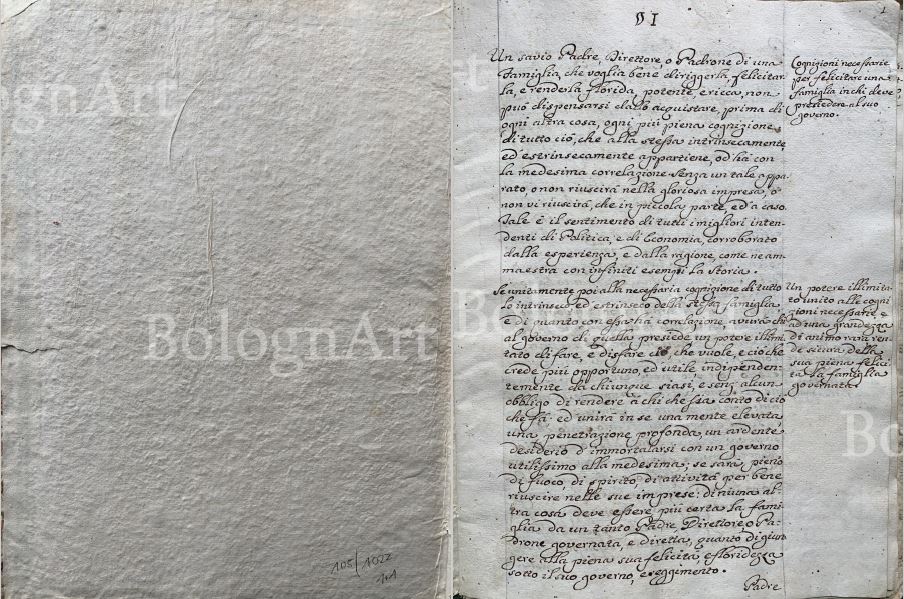 105/1022
1.1
§1
Un savio Padre, Direttore, o Padrone di una
Famiglia, che voglia bene diriggerla, felicitar-
la, e renderla florida, potente, e ricca, non
può dispensarsi dallo acquistare, prima di
ogni altra cosa, ogni più piena cognizione
di tutto ciò, che alla stessa intrinsecamente,
ed estrinsecamente appartiene, od hà con
la medesima correlazione. Senza un tale appa-
rato, o non riuscirà nella gloriosa impresa, o
non vi riuscirà, che in piccola parte, ed a caso.
Tale è il sentimento di tutti i migliori inten-
denti di Politica, e di Economia, corroborato
dalla esperienza, e dalla ragione, come ne am-
maestra con infiniti esempi la Storia.
Se unitamente poi alla necessaria cognizione di tutto
lo intrinseco ed estrinseco della stessa famiglia,
e di quanto con essa hà correlazione, averà chi
al governo di quella presiede un potere illimi-
tato di fare, e disfare ciò, che vuole, e ciò che
crede più opportuno, ed utile, indipenden-
temente da chiunque siasi, e senz'alcun
obbligo di rendere à chi che sia conto di ciò
che fà; ed unirà in se una mente elevata,
una penetrazione profonda, un ardente
desiderio d'immortalarsi con un governo
utilissimo alla medesima; se sarà pieno
di fuoco, di spirito, di attività per bene
riuscire nelle sue imprese: di niuna al-
tra cosa deve essere più certa la fami-
glia da un tanto Padre, Direttore, o Pa-
drone governata, e diretta, quanto di giun-
gere alla piena sua felicità, e floridezza
sotto il suo governo, e reggimento.
Padre
Cognizioni necessarie
per felicitare una
famiglia in chi deve
presiedere al suo
governo.
Un potere illimita-
to unito alle cogni
zioni necessarie, e
ad una grandezza
di animo rara ren-
de sicura della
sua piena felici-
tà la famiglia
governata.
BolognArt
BolognArt